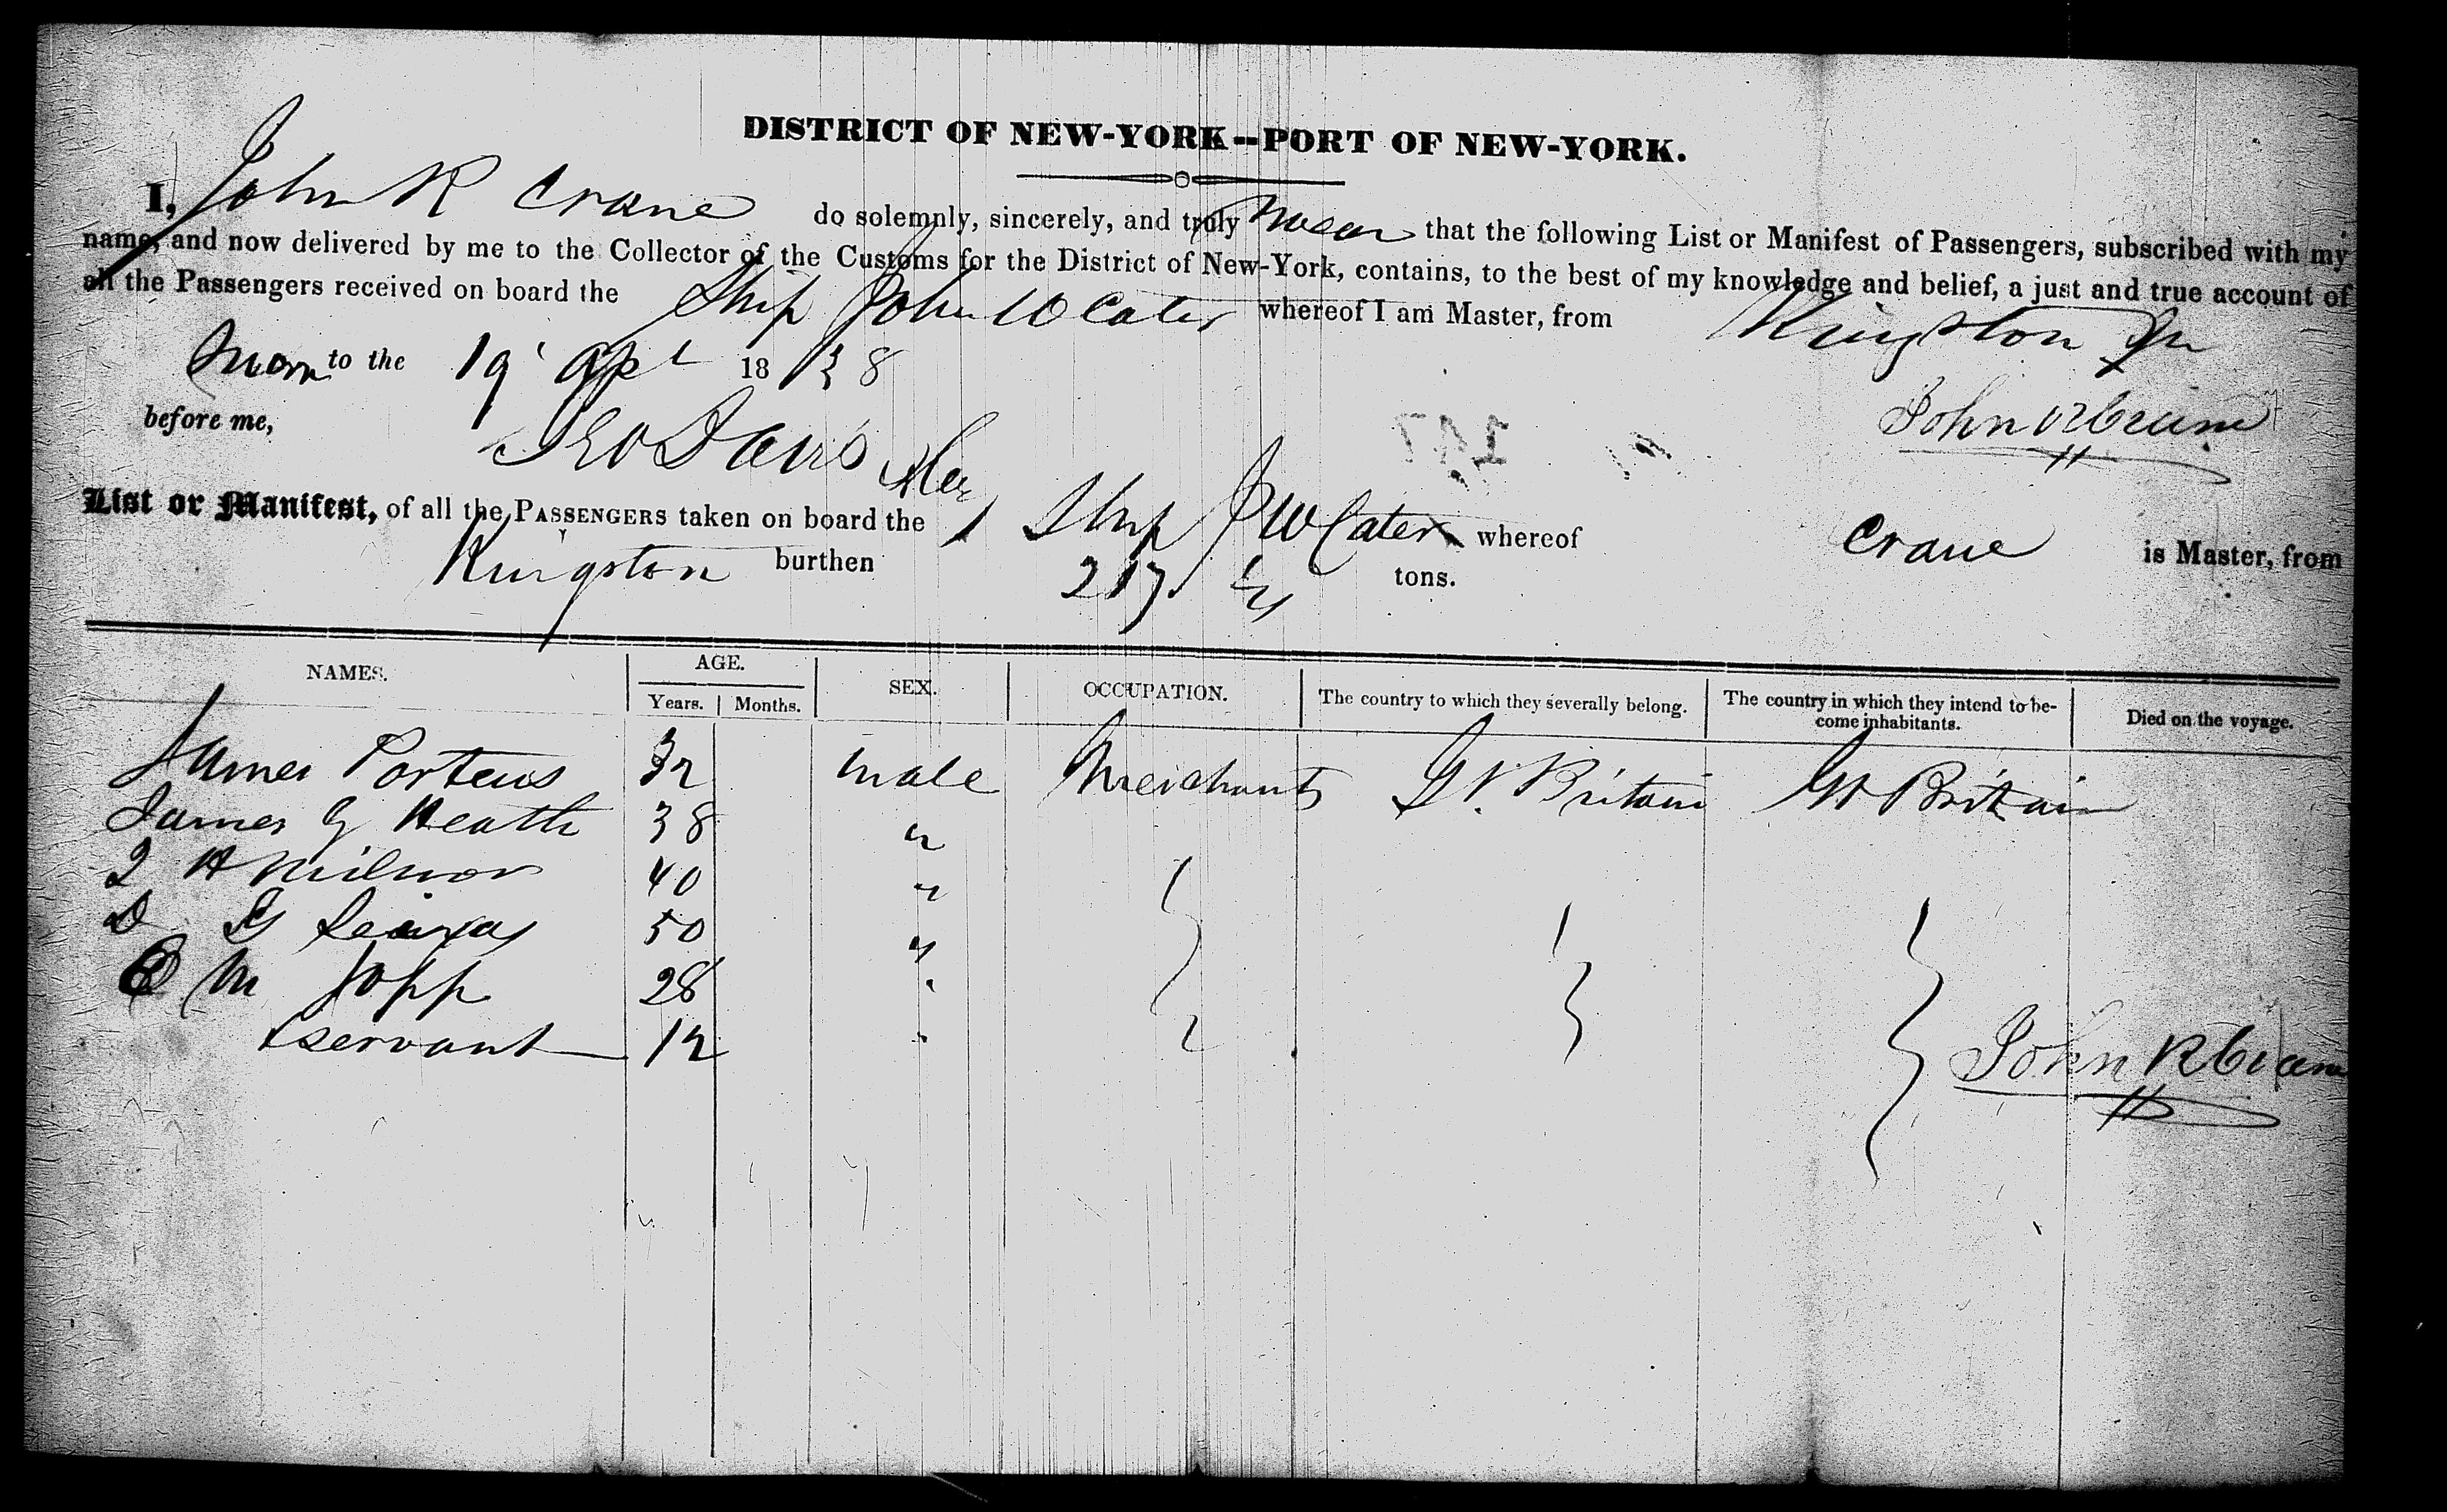 DISTRICT OF NEW-YORK--PORT OF NEW-YORK.
I, John R Crane do solemnly, sincerely, and truly swear that the following List or Manifest of Passengers, subscribed with my
name, and now delivered by me to the Collector of the Customs for the District of New-York, contains, to the best of my knowledge and belief, a just and true account of
all the Passengers received on board the Ship John W Cater whereof I am Master, from Kingston Jm
Sworn to the 19' Apl 1838
John R Crane
before me,
Davis
List or Manifest, of all the PASSENGERS taken on board the Ship J W Cater whereof Crane is Master, from
Kingston burthen 217 tons.
NAMES. AGE. SEX. OCCUPATION. The country to which they severally belong. The country in which they intend to be-come inhabitants. Died on the voyage.
Years. Months.
James Porteus 32 male Merchants Gt. Britain Gt Britain
James G Heath 38 "
H Milnor 40 "
D G Seixas 50 "
E M Jopp 28 "
servant 12 "
John R Crane